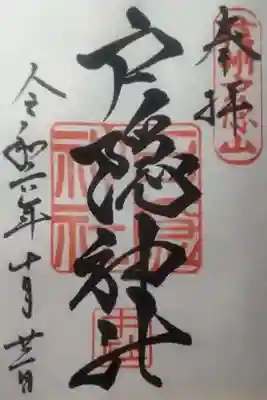 奉拝
戸隠神社
令和六年十月廿一日